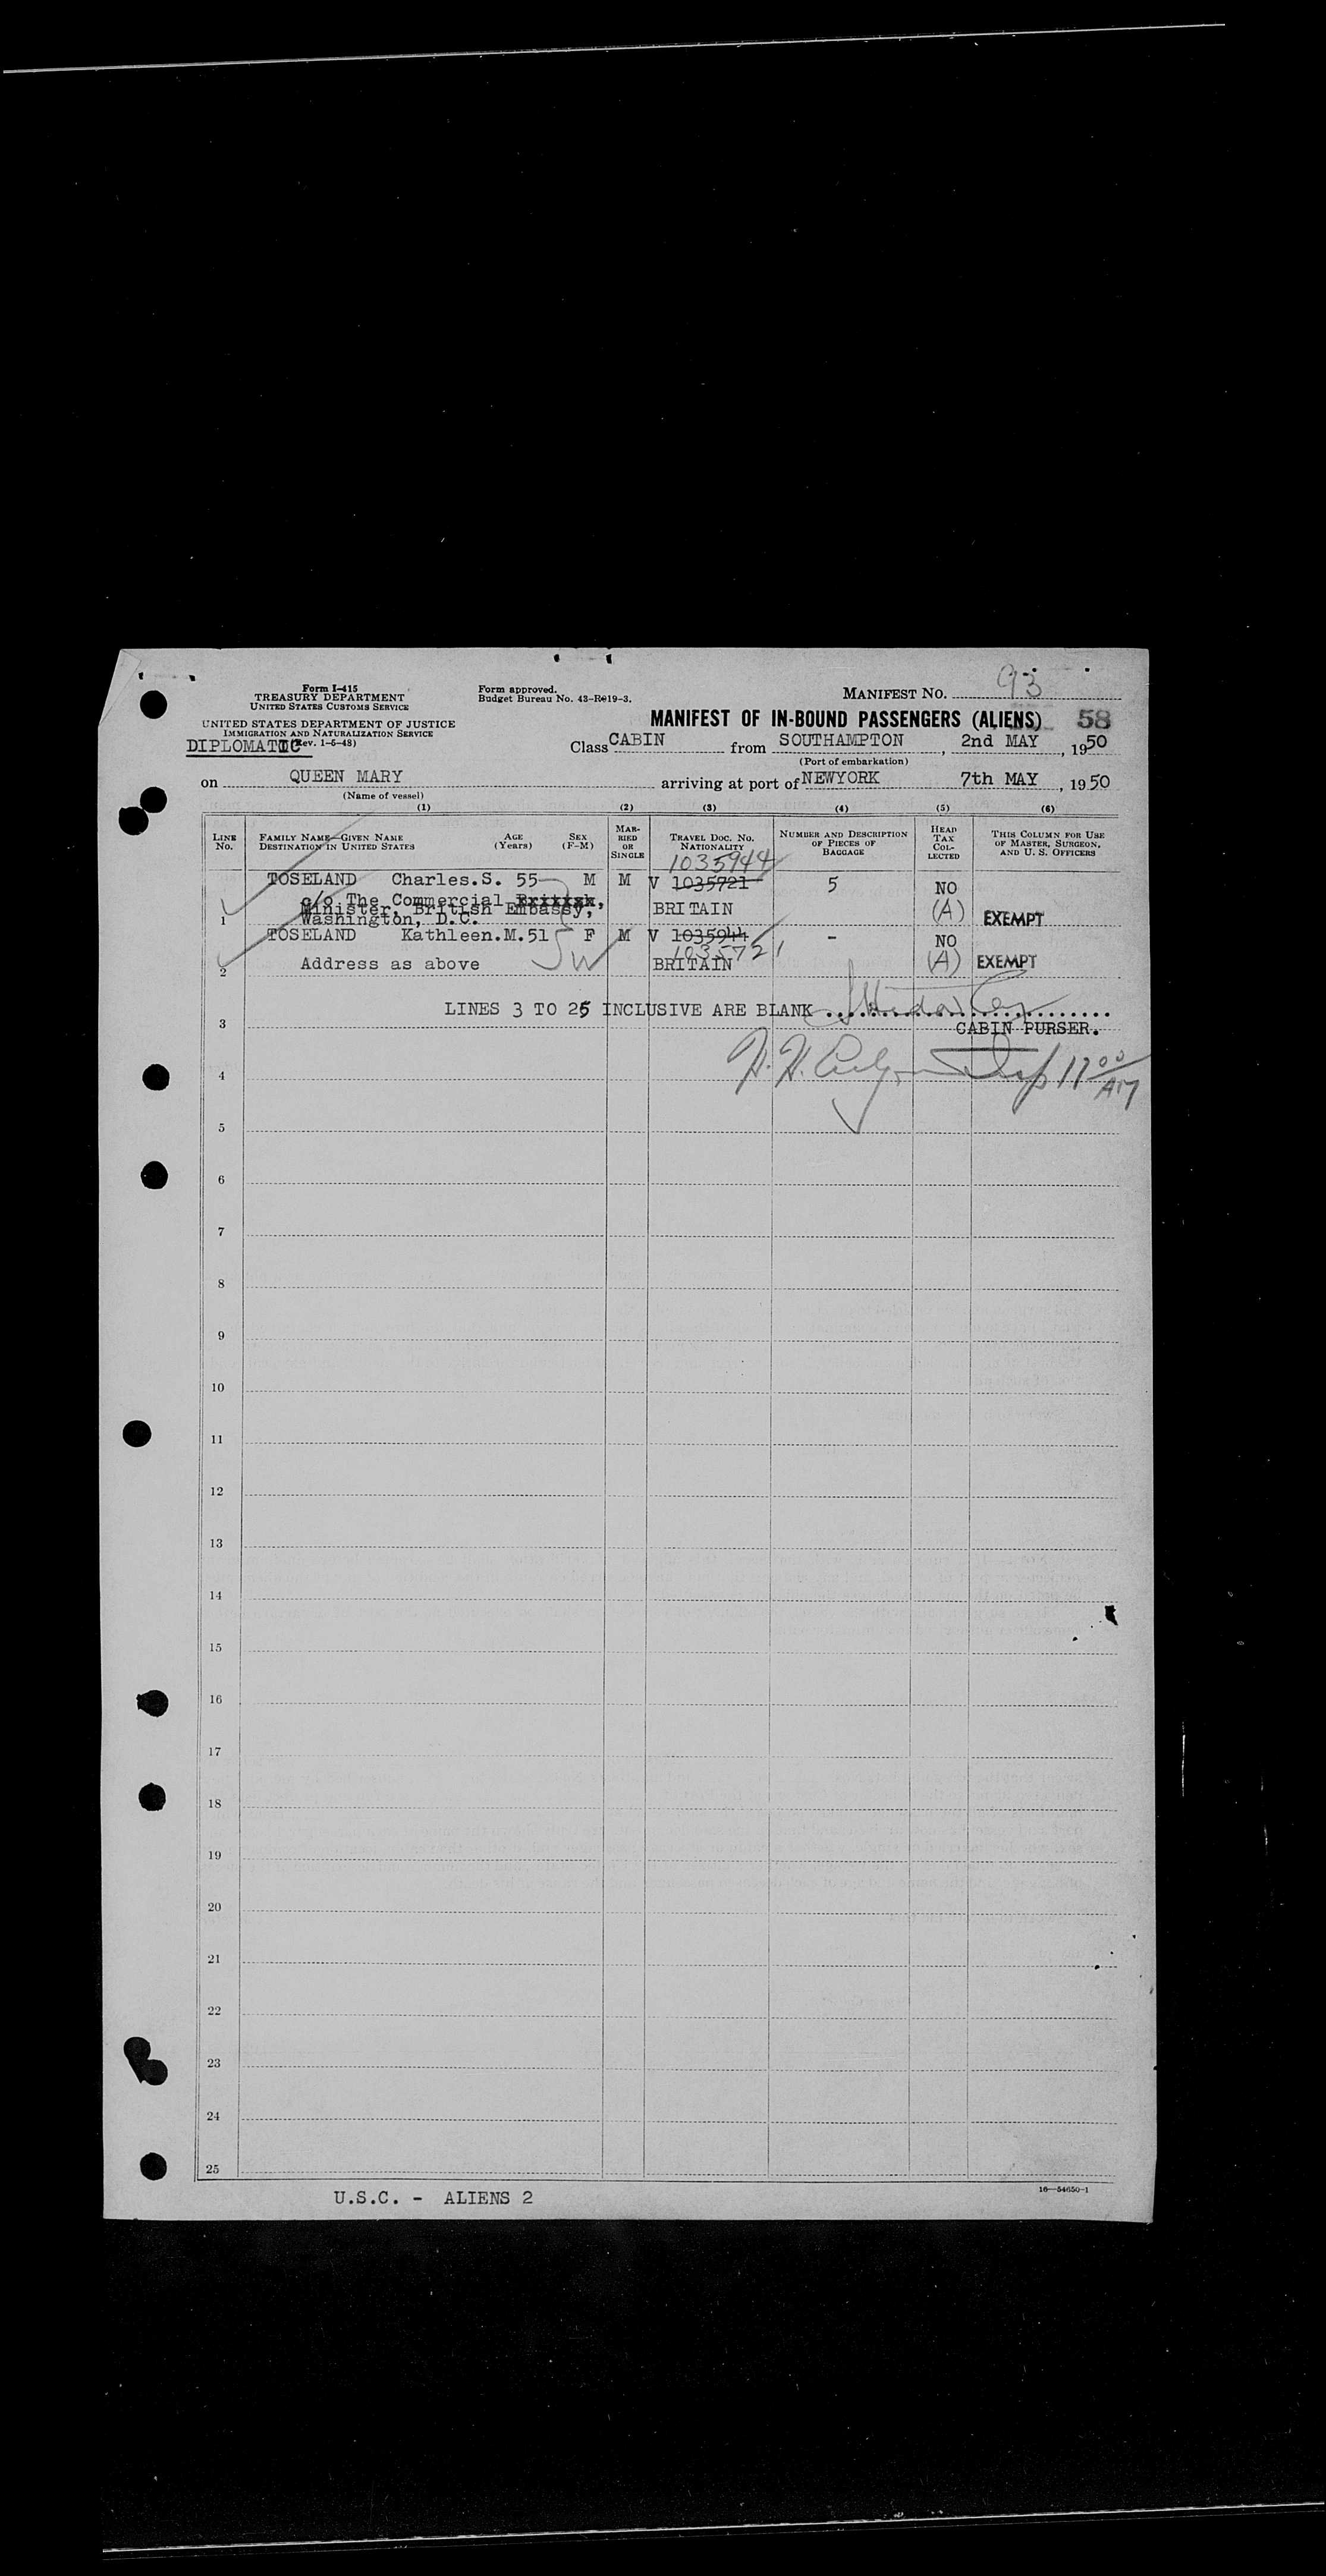 Form I-415
TREASURY DEPARTMENT
UNITED STATES CUSTOMS SERVICE
Form approved.
Budget Bureau No. 43-R019-3.
MANIFEST NO. 93
UNITED STATES DEPARTMENT OF JUSTICE
IMMIGRATION AND NATURALIZATION SERVICE
(Rev. 1-6-48)
MANIFEST OF IN-BOUND PASSENGERS (ALIENS) 58
DIPLOMATIC
Class CABIN from SOUTHAMPTON, 2nd MAY, 1950
(Port of embarkation)
on QUEEN MARY arriving at port of NEWYORK 7th MAY, 1950
(Name of vessel)
(1) (2) (3) (4) (5) (6)
LINE No.
FAMILY NAME—GIVEN NAME
DESTINATION IN UNITED STATES
AGE (Years)
SEX (F-M)
MARRIED OR SINGLE
TRAVEL DOC. NO.
NATIONALITY
NUMBER AND DESCRIPTION OF PIECES OF BAGGAGE
HEAD TAX COLLECTED
THIS COLUMN FOR USE OF MASTER, SURGEON, AND U. S. OFFICERS
1035944
TOSELAND Charles.S. 55 M M V 1035721 5 NO
c/o The Commercial British,
Minister, British Embassy, BRITAIN (A) EXEMPT
1 Washington, D.C.
TOSELAND Kathleen.M. 51 F M V 1035944 - NO
1035721
2 Address as above BRITAIN (A) EXEMPT
LINES 3 TO 25 INCLUSIVE ARE BLANK
3 CABIN PURSER.
4 11 00 AM
5
6
7
8
9
10
11
12
13
14
15
16
17
18
19
20
21
22
23
24
25
U.S.C. - ALIENS 2
16—54650-1